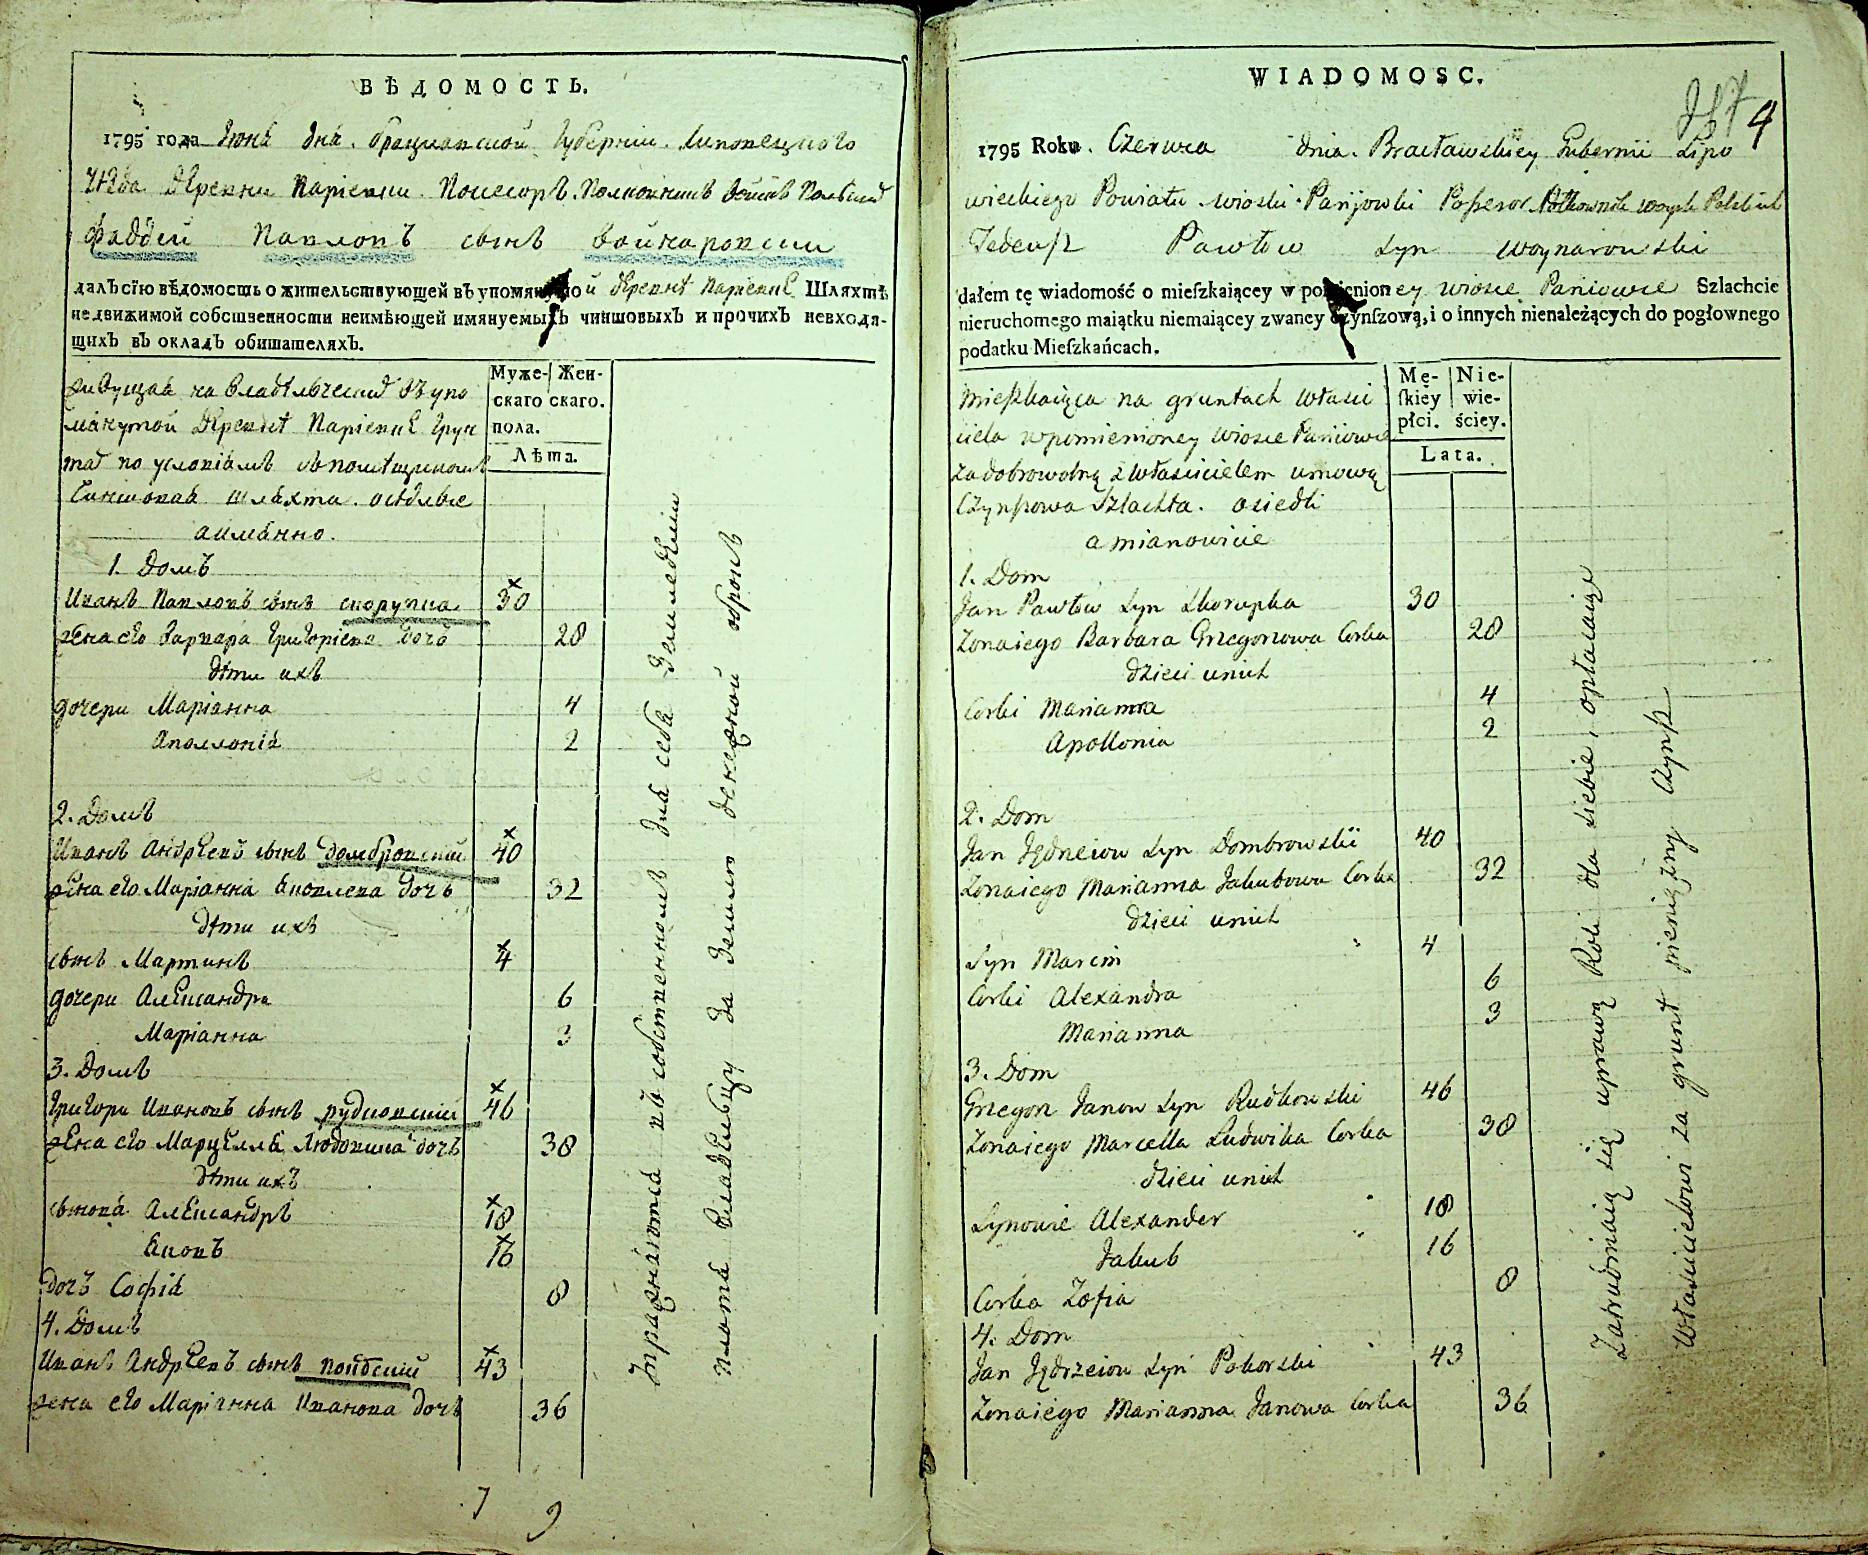 ВѢДОМОСТЬ.
1795 года Іюня дня. Брацлавской Губерніи. Липовецкого
уѣзда деревни Паріевки Посесоръ. Полковникъ войскъ Польскихъ
Фаддей Павловъ сынъ Войнаровскій
далъ сію вѣдомость о жительствующей въ упомянутой деревнѣ Паріевкѣ Шляхтѣ
недвижимой собственности неимѣющей имянуемыхъ чиншовыхъ и прочихъ невходя-
щихъ въ окладъ обитателяхъ.
Муже- Жен-
скаго скаго.
пола.
Лѣта.
живущая на владѣльческихъ въ упо
мянутой деревнѣ Паріевкѣ грун
тахъ по условіямъ съ помѣщикомъ
Чиншовая шляхта. осѣдлые
а имянно.
1. Домъ
Иванъ Павловъ сынъ скорупка 30
жена его Варвара Григоріева дочь 28
дѣти ихъ
дочери Маріанна 4
Аполлонія 2
2. Домъ
Иванъ Андреевъ сынъ домбровскій 40
жена его Маріанна Яковлева дочь 32
дѣти ихъ
сынъ Мартинъ 4
дочери Александра 6
Маріанна 3
3. Домъ
Григори Ивановъ сынъ рудковскій 46
жена его Марцелля Людовика дочь 38
дѣти ихъ
сыновя Александръ 18
Яковъ 16
дочь Софія 8
4. Домъ
Иванъ Андреевъ сынъ 43
жена его Маріанна Иванова дочь 36
Упражняются въ собственномъ для себя земледѣліи
платя владѣльцу за землю денежной оброкъ
7 9
WIADOMOSC.
4
1795 Roku. Czerwca dnia. Bracławskiey Gubernii Lipo
wieckiego Powiatu wioski Parijowki Possesor Półkownik woysk Polskich
Tedeusz Pawłow syn Woynarowski
dałem tę wiadomość o mieſzkaiącey w pomienioney wiosce Pariowce Szlachcie
nieruchomego maiątku niemaiącey zwaney czynſzową, i o innych nienależących do pogłownego
podatku Mieſzkańcach.
Mę- Nie-
ſkiey wie-
płci. ściey.
Lata.
Mieszkaiąca na gruntach własci
ciela wpomienioney wiosce Pariowce
za dobrowolną z właścicielem umową
Czynszowa Szlachta. osiedli
a mianowicie
1. Dom
Jan Pawłow syn Skorupka 30
Zona iego Barbara Grzegorzowa Corka 28
dzieci unich
Corki Marianna 4
Apollonia 2
2. Dom
Jan Jędrzeiow syn Dombrowskii 40
Zona iego Marianna Jakubowa Corka 32
dzieci unich
Syn Marcin 4
Corki Alexandra 6
Marianna 3
3. Dom
Grzegorz Janow syn Rudkowski 46
Zona iego Marcella Ludwika Corka 38
dzieci unich
Synowie Alexander 18
Jakub 16
Corka Zofia 8
4. Dom
Jan Jędrzeiow syn Poborski 43
Zona iego Marianna Janowa Corka 36
Zatrudniaią się uprawą Roli dla siebie, opłacaiąc
Właścicielowi za grunt pieniężny czynsz